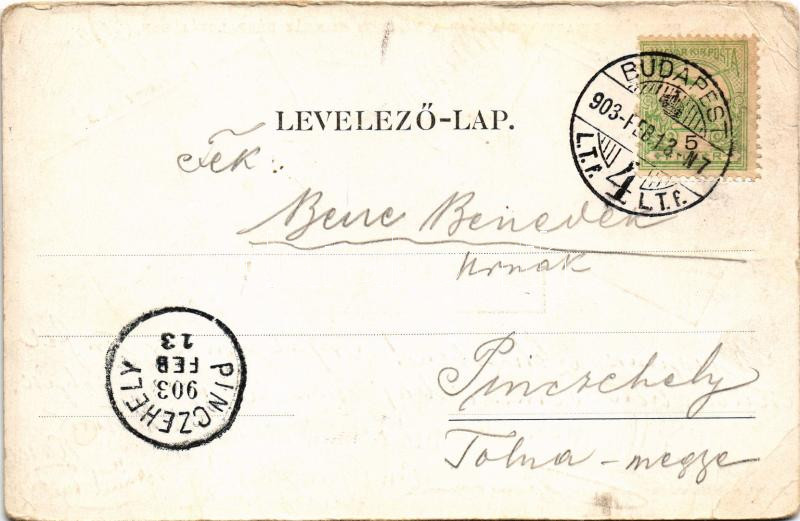 MAGYAR KIR. POSTA
5
BUDAPEST
903-FEB.13-N7
4
L.T.f. L.T.f.
LEVELEZŐ-LAP.
Tek.
Bene Benedek
Urnak
Pinczehely
Tolna-megye
PINCZEHELY
903
FEB
13